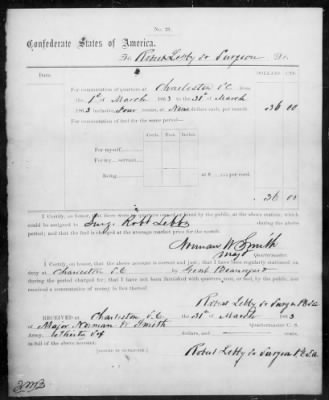 No. 28.
Confederate States of America,
To Robert Lebby Jr Surgeon, Dr.
Date. DOLLARS. CTS.
For commutation of quarters at Charleston S.C. from
the 1st of March 1863 to 31st of March
1863 inclusive four rooms at Nine dollars each, per month, 36 00
For commutation of fuel for the same period—
Cords. Feet. Inches.
For myself,
For my servant,
Being, at $ per cord,
36 00
I Certify, at this station, which
could be assigned to Surg. Robt Lebby
period; and that the fuel is charged at the average market price for the month.
Norman W Smith
Major Quartermaster.
I Certify, that the above account is correct and just; that I have been regularly stationed on
duty at Charleston S.C. by Genl Beauregard
during the period charged for; that I have not been furnished with quarters, rent, or fuel, by the public, nor received
a commutation of money in lieu thereof.
Robert Lebby Jr Surgeon
RECEIVED at Charleston S.C. the 31st of March 1863
of Major Norman W Smith Quartermaster C. S.
Army, thirty six dollars, and cents,
in full of the above account.
Robert Lebby Jr Surgeon